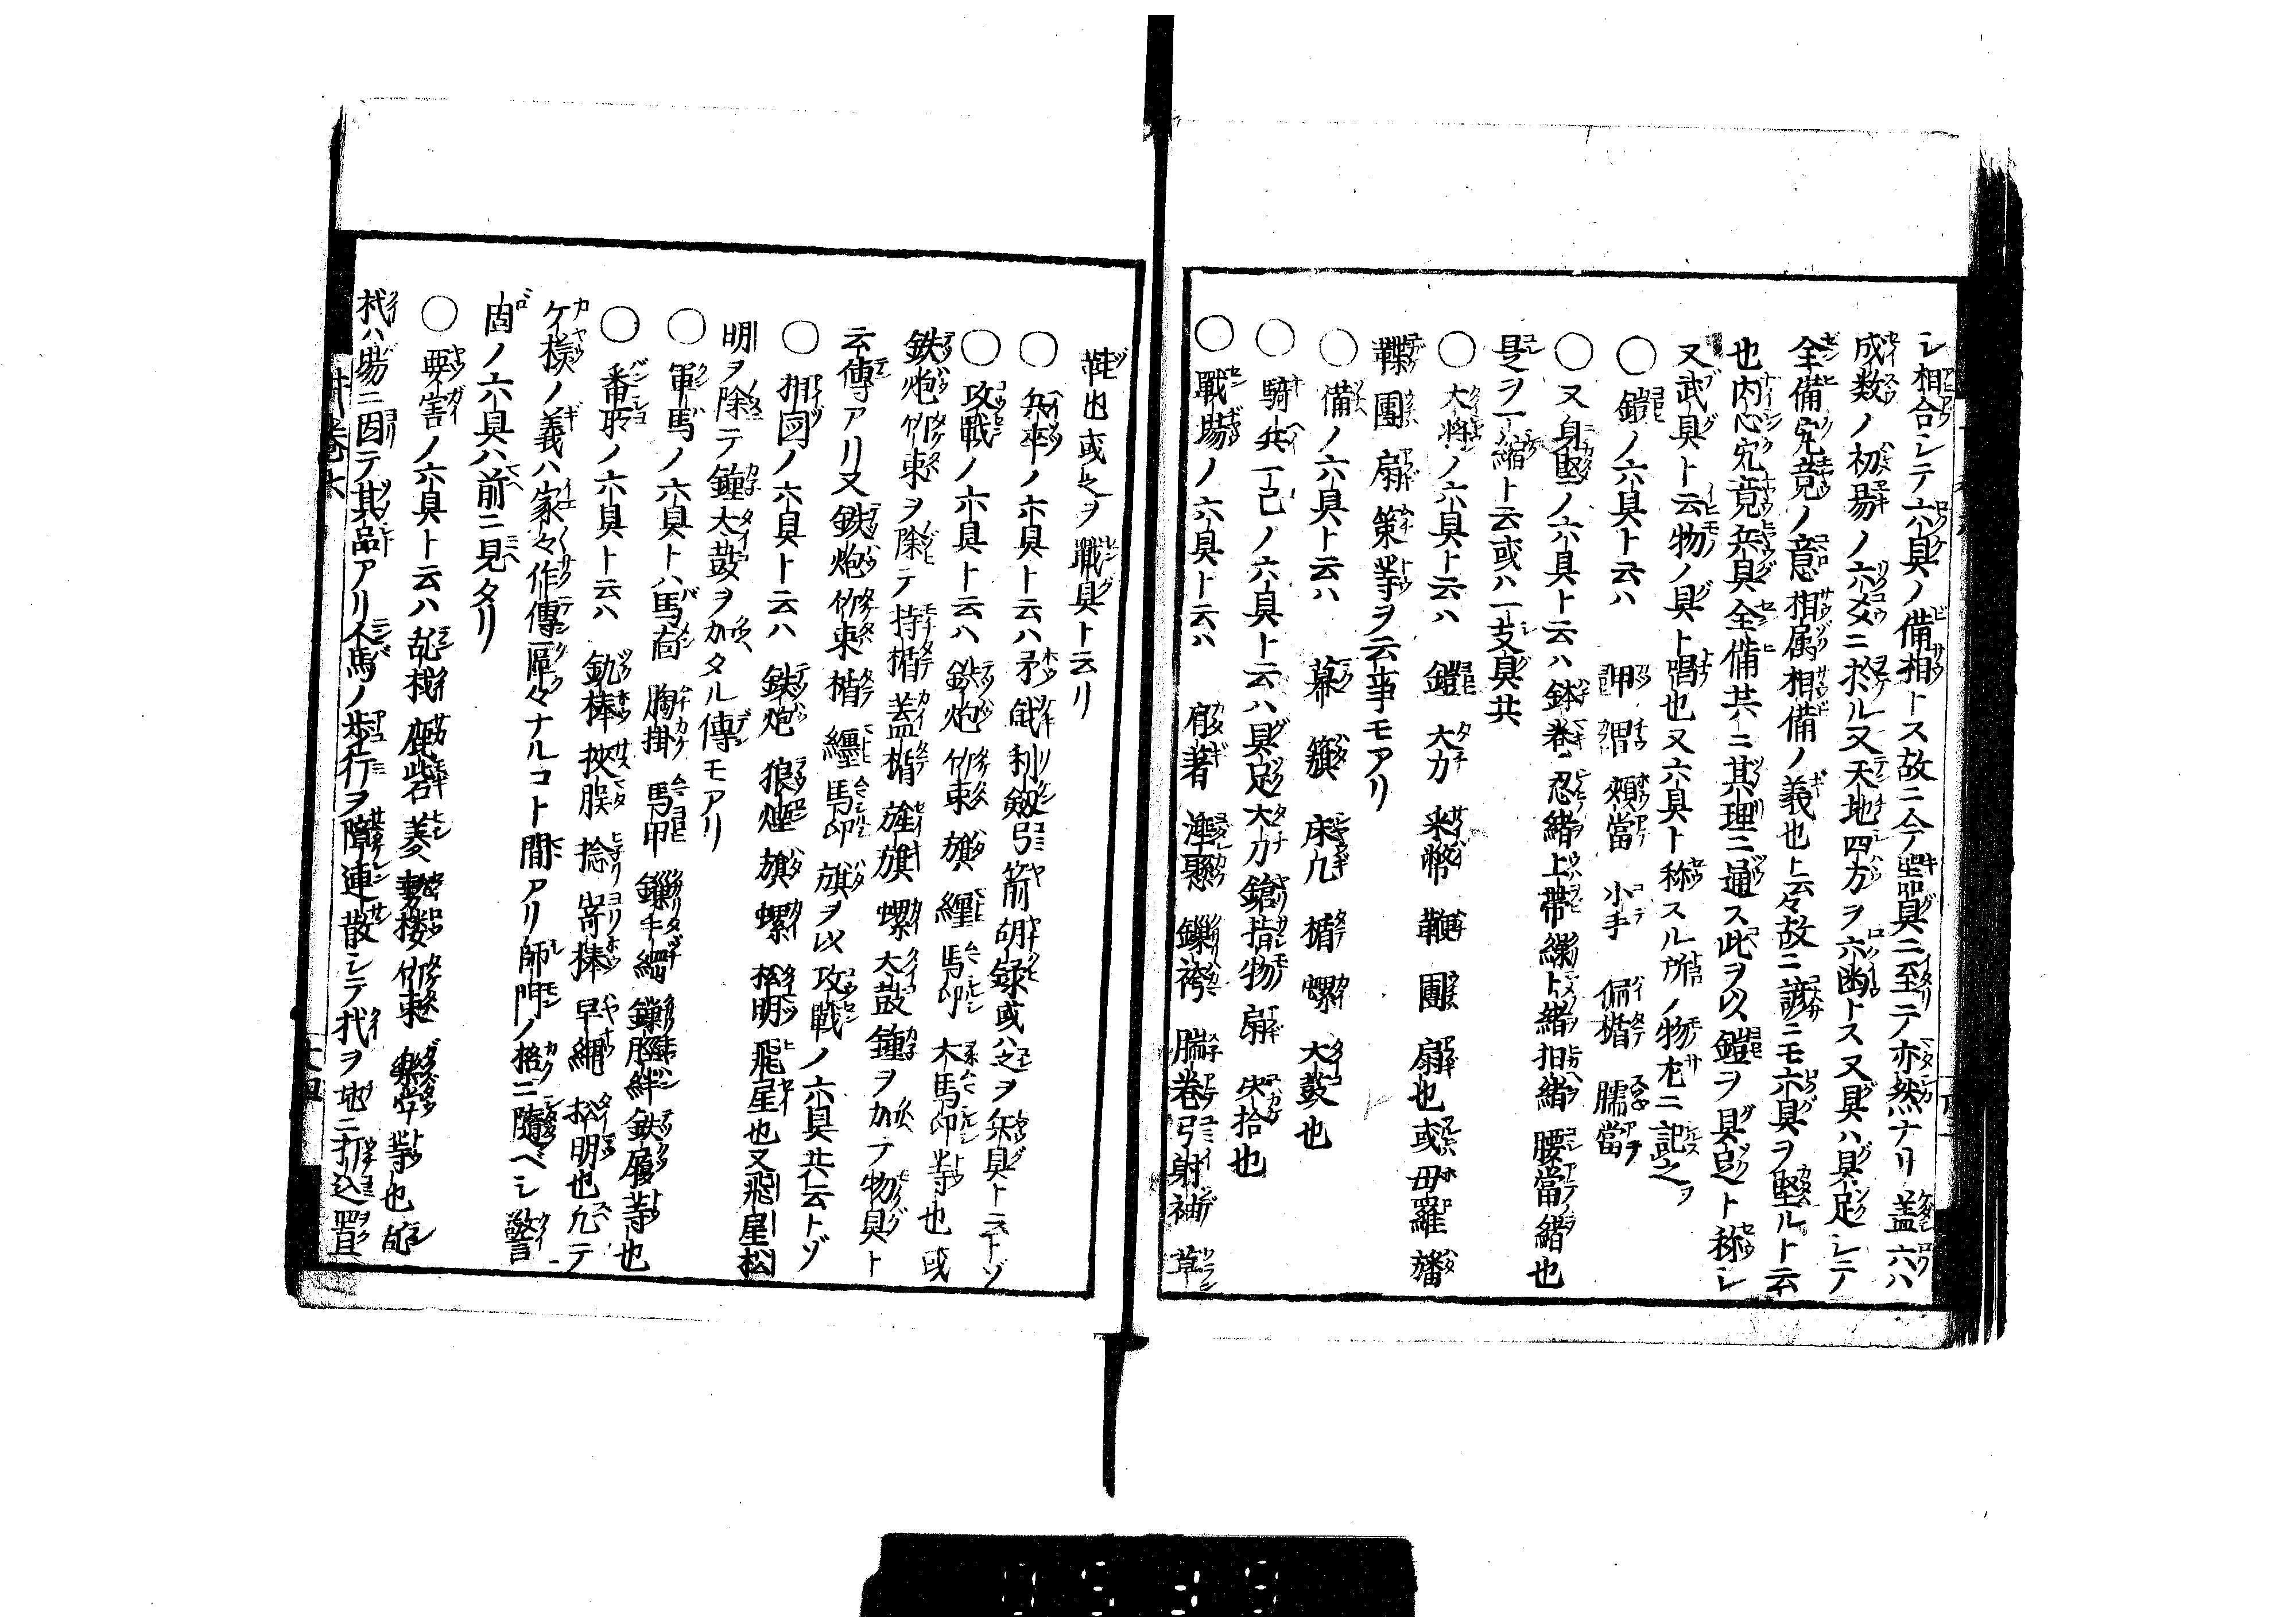 シ相合シテ六具ノ備相トス故ニ今聖具ニ至テ亦然ナリ蓋六ハ
成数ノ初易ノ六爻ニ於ル又天地四方ヲ六凾トス又具ハ具足シテノ
全備究竟ノ意相属相備ノ義也ト云々故ニ諺ニモ六具ヲ堅ルト云
也内心究竟兵具全備共ニ其理ニ通ス此ヲ以鎧ヲ具足ト称シ
又武具ト云物ノ具ト唱也又六具ト称スル所ノ物左ニ記之ヲ
○鎧ノ六具ト云ハ 胛 頬當 小手 佩楯 臑當
○又身堅ノ六具ト云ハ鉢巻忍緒上帯繰ト緒拍緒腰當緒也
是ヲ一縮ト云或ハ一支具共
○大将ノ六具ト云ハ 鎧 大刀 采幣 鞭 團 扇也或毋羅 旛
鞢團扇策等ヲ云事モアリ
○備ノ六具ト云ハ 幕 籏 床几 楯 螺 大鼓也
○騎兵一己ノ六具ト云ハ具足大刀鎗指物扇 拾也
○戰場ノ六具ト云ハ 肩著 鏁袴 腨巻弓射袖 草
鞋也或之ヲ職具ト云リ
○兵卒ノ六具ト云ハ矛 利劔弓箭胡録或ハ之ヲ兵具ト云トゾ
○攻戰ノ六具ト云ハ鉄炮竹束旗纒馬印大馬印等也或
鉄炮竹束ヲ除テ持楯蓋楯旌旗螺大鼓鐘ヲ加テ物具ト
云傳アリ又鉄炮竹束楯纒馬印旗ヲ以攻戰ノ六具共云トゾ
○相図ノ六具ト云ハ 鉄炮 狼煙 旗 螺 松明 飛星也又飛星松
明ヲ除テ鐘大鼓ヲ加タル傳モアリ
○軍馬ノ六具トハ馬面 胸掛 馬甲 鏁手綱 鏁脛絆鉄履等也
○番所ノ六具ト云ハ 釣棒 挟股 捻 寄棒 早縄 松明也凡テ
ケ様ノ義ハ家々作傳區々ナルコト間アリ師門ノ格ニ隨ベシ警
固ノ六具ハ前ニ見タリ
○要害ノ六具ト云ハ乱杭 鹿砦 菱 勢楼竹束 等也乱
杭ハ場ニ因テ其品アリ人馬ノ歩行ヲ隔連散シテ杙ヲ地ニ打込置